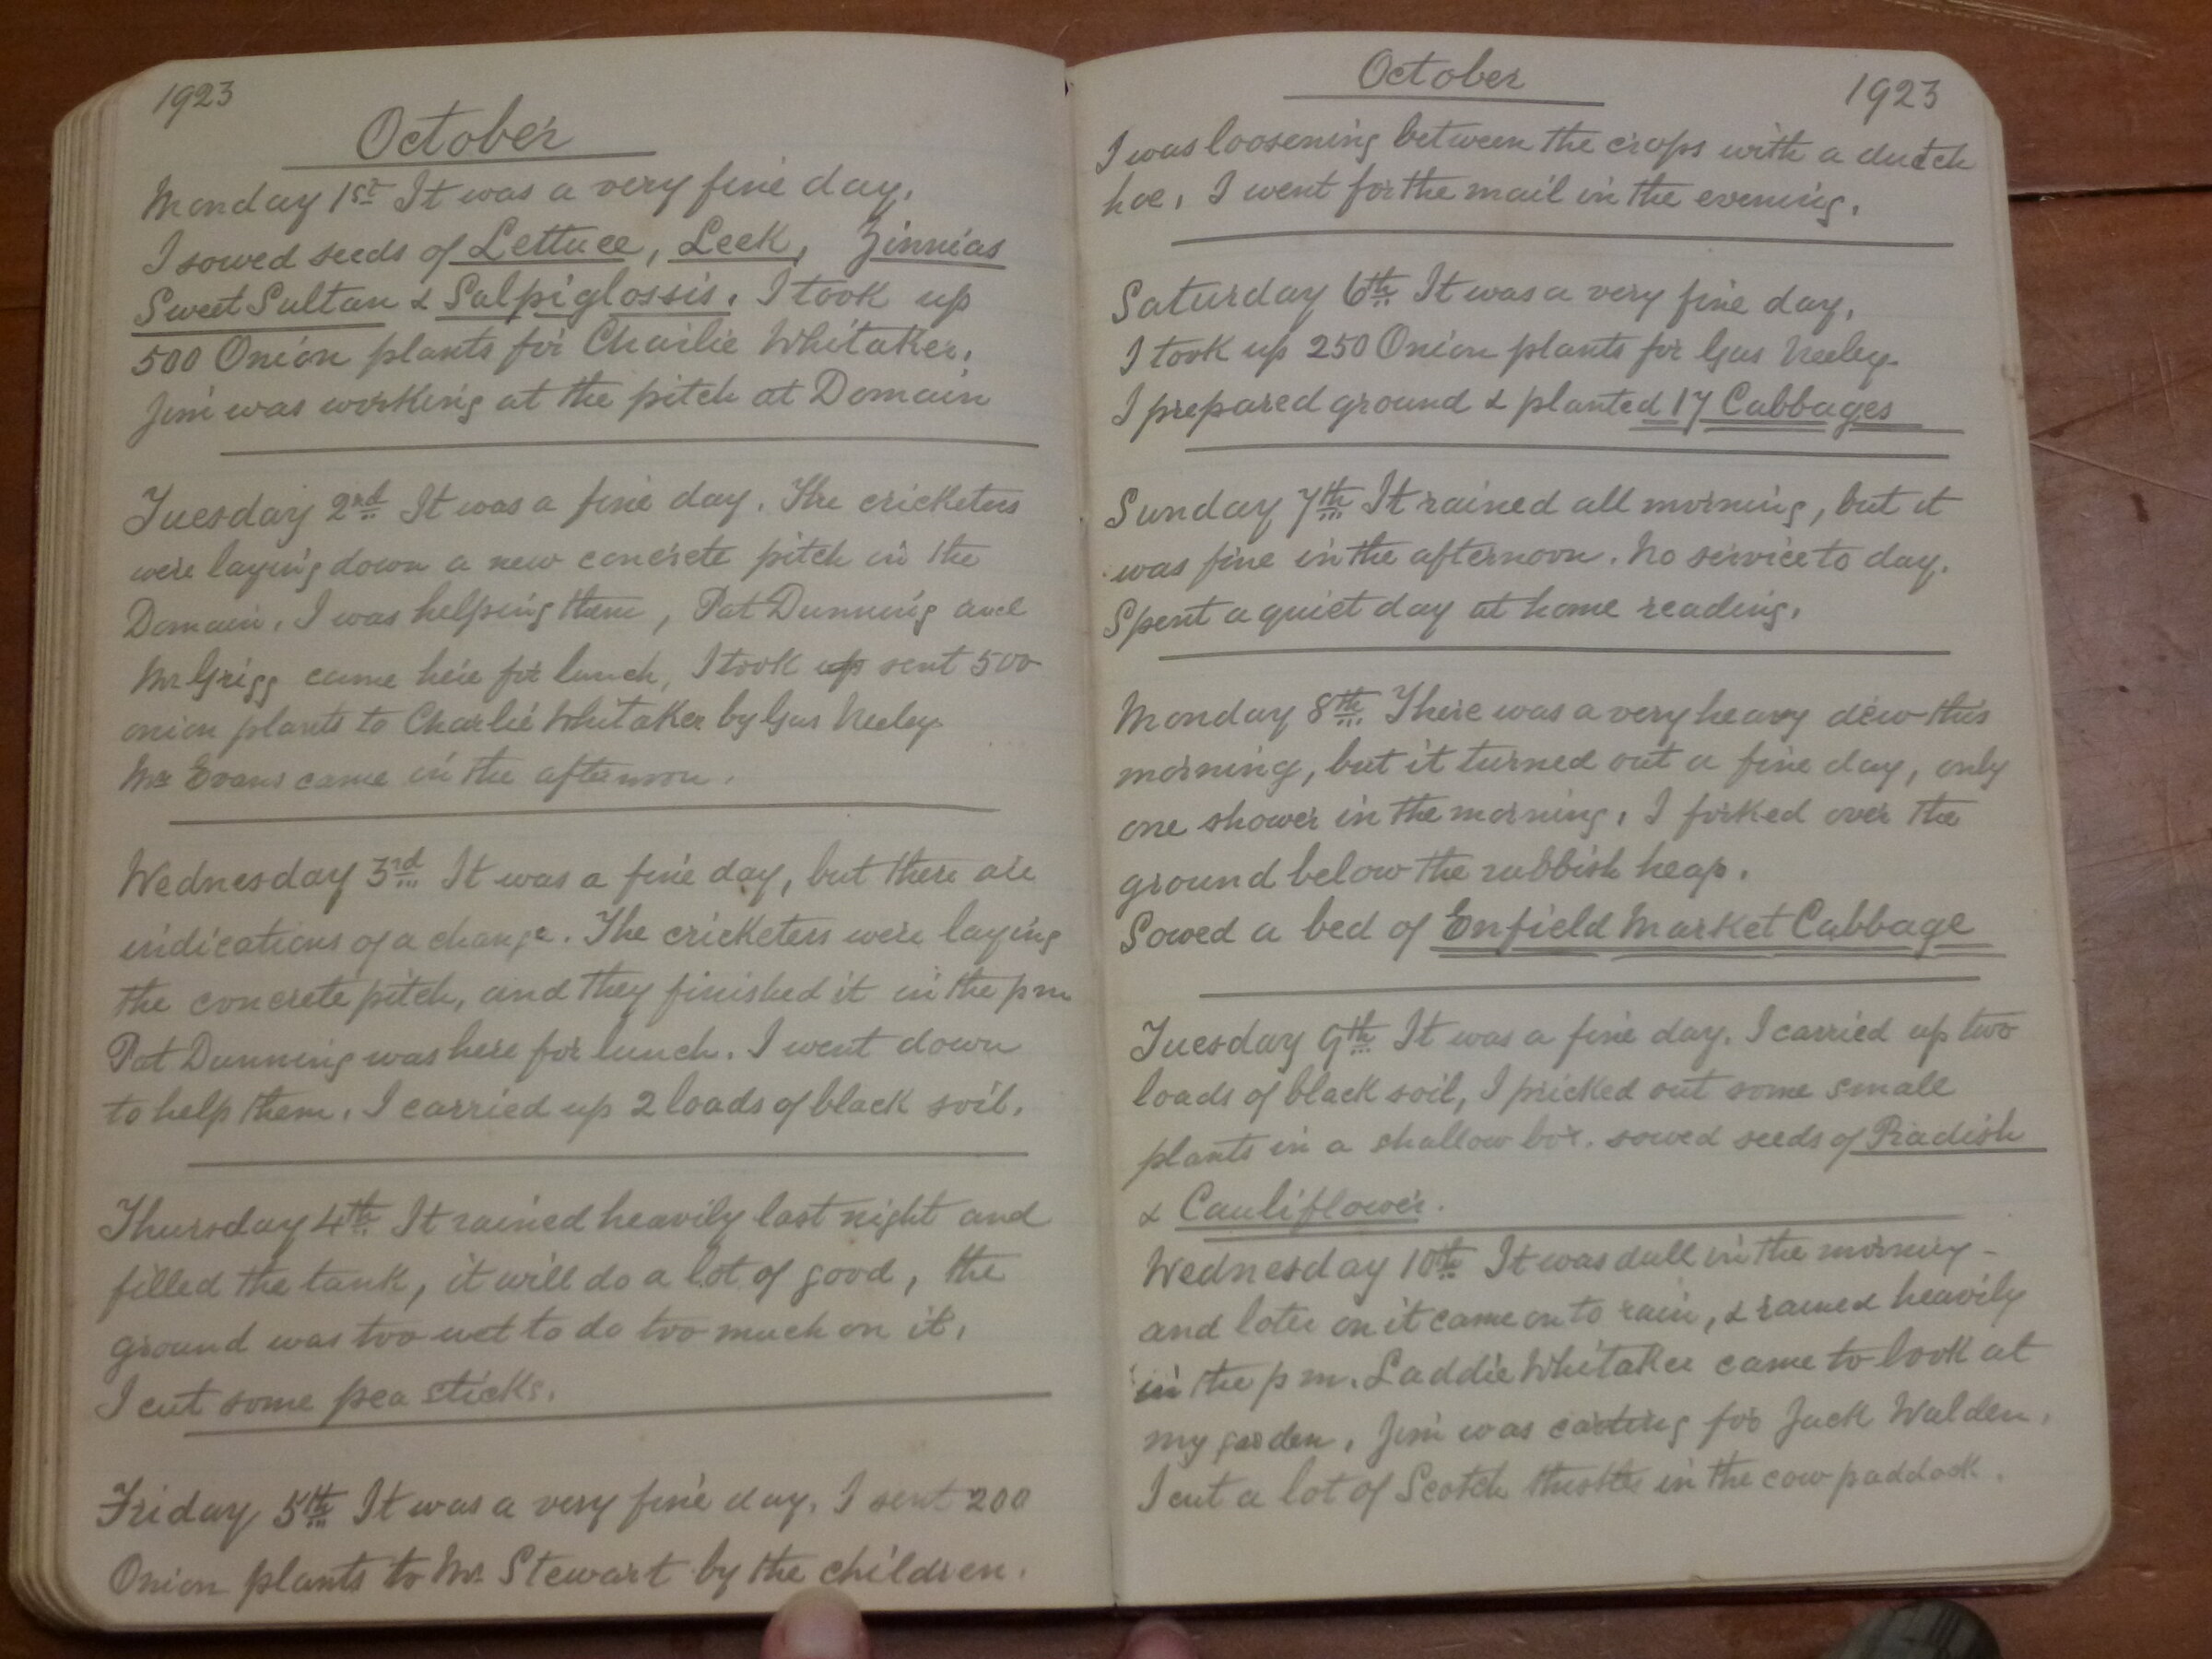 1923
October
Monday 1st It was a very fine day.
I sowed seeds of Lettuce, Leek, Zinnias
Sweet Sultan & Salpiglossis. I took up
500 Onion plants for Charlie Whitaker.
Jim was working at the pitch at Domain
Tuesday 2nd It was a fine day. The cricketers
were laying down a new concrete pitch in the
Domain. I was helping them, Pat Dunning and
Mr Grigg came here for lunch, I took up sent 500
onion plants to Charlie Whitaker by Gus Neeley
Mr Evans came in the afternoon.
Wednesday 3rd It was a fine day, but there are
indications of a change. The cricketers were laying
the concrete pitch, and they finished it in the pm
Pat Dunning was here for lunch. I went down
to help them. I carried up 2 loads of black soil.
Thursday 4th It rained heavily last night and
filled the tank, it will do a lot of good, the
ground was too wet to do too much on it.
I cut some pea sticks.
Friday 5th It was a very fine day. I sent 200
Onion plants to Mr. Stewart by the children.
October 1923
I was loosening between the crops with a dutch
hoe. I went for the mail in the evening.
Saturday 6th It was a very fine day.
I took up 250 Onion plants for Gus Neeley
I prepared ground & planted 17 Cabbages
Sunday 7th It rained all morning, but it
was fine in the afternoon. No service to day.
Spent a quiet day at home reading.
Monday 8th There was a very heavy dew this
morning, but it turned out a fine day, only
one shower in the morning. I forked over the
ground below the rubbish heap.
Sowed a bed of Enfield Market Cabbage
Tuesday 9th It was a fine day. I carried up two
loads of black soil, I pricked out some small
plants in a shallow box. sowed seeds of Radish
& Cauliflower.
Wednesday 10th It was dull in the morning
and later on it came on to rain, & rained heavily
in the pm. Laddie Whitaker came to look at
my garden. Jim was carting for Jack Walden.
I cut a lot of Scotch thistles in the cow paddock.